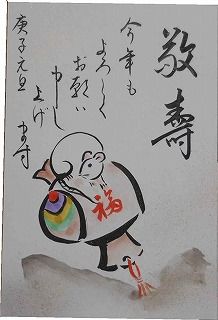 敬壽
今年も
よろしく
お願い
申し
上げ
ます
庚子元旦
福